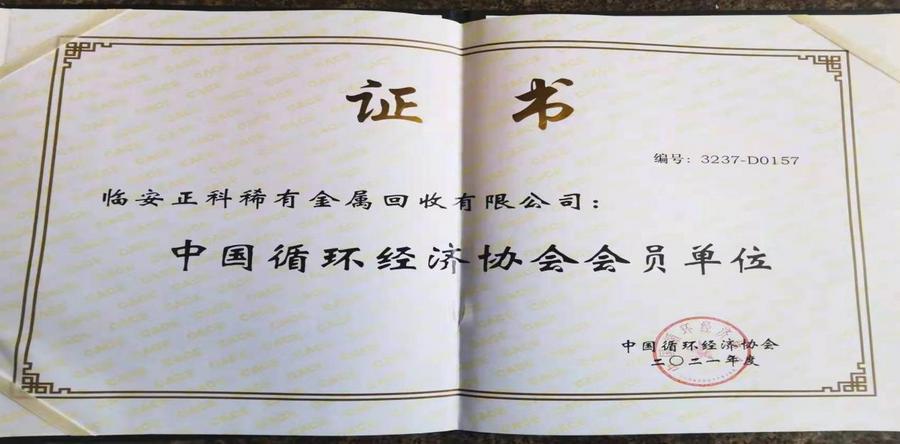 证书
编号：3237-D0157
临安正科稀有金属回收有限公司：
中国循环经济协会会员单位
中国循环经济协会
二〇二一年度